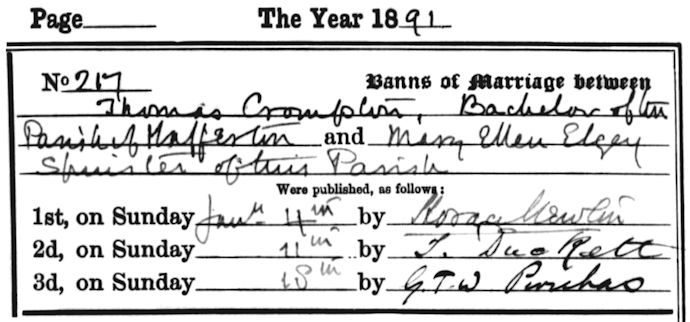 Page The Year 1891
No 217 Banns of Marriage between
Thomas Crompton, Bachelor of the
Parish of Nafferton and Mary Ellen Elgey
Spinster of this Parish
Were published, as follows:
1st, on Sunday Jany. 4th by Horace Newton
2d, on Sunday 11th by T. Duckett
3d, on Sunday 18th by G.T.W. Purchas